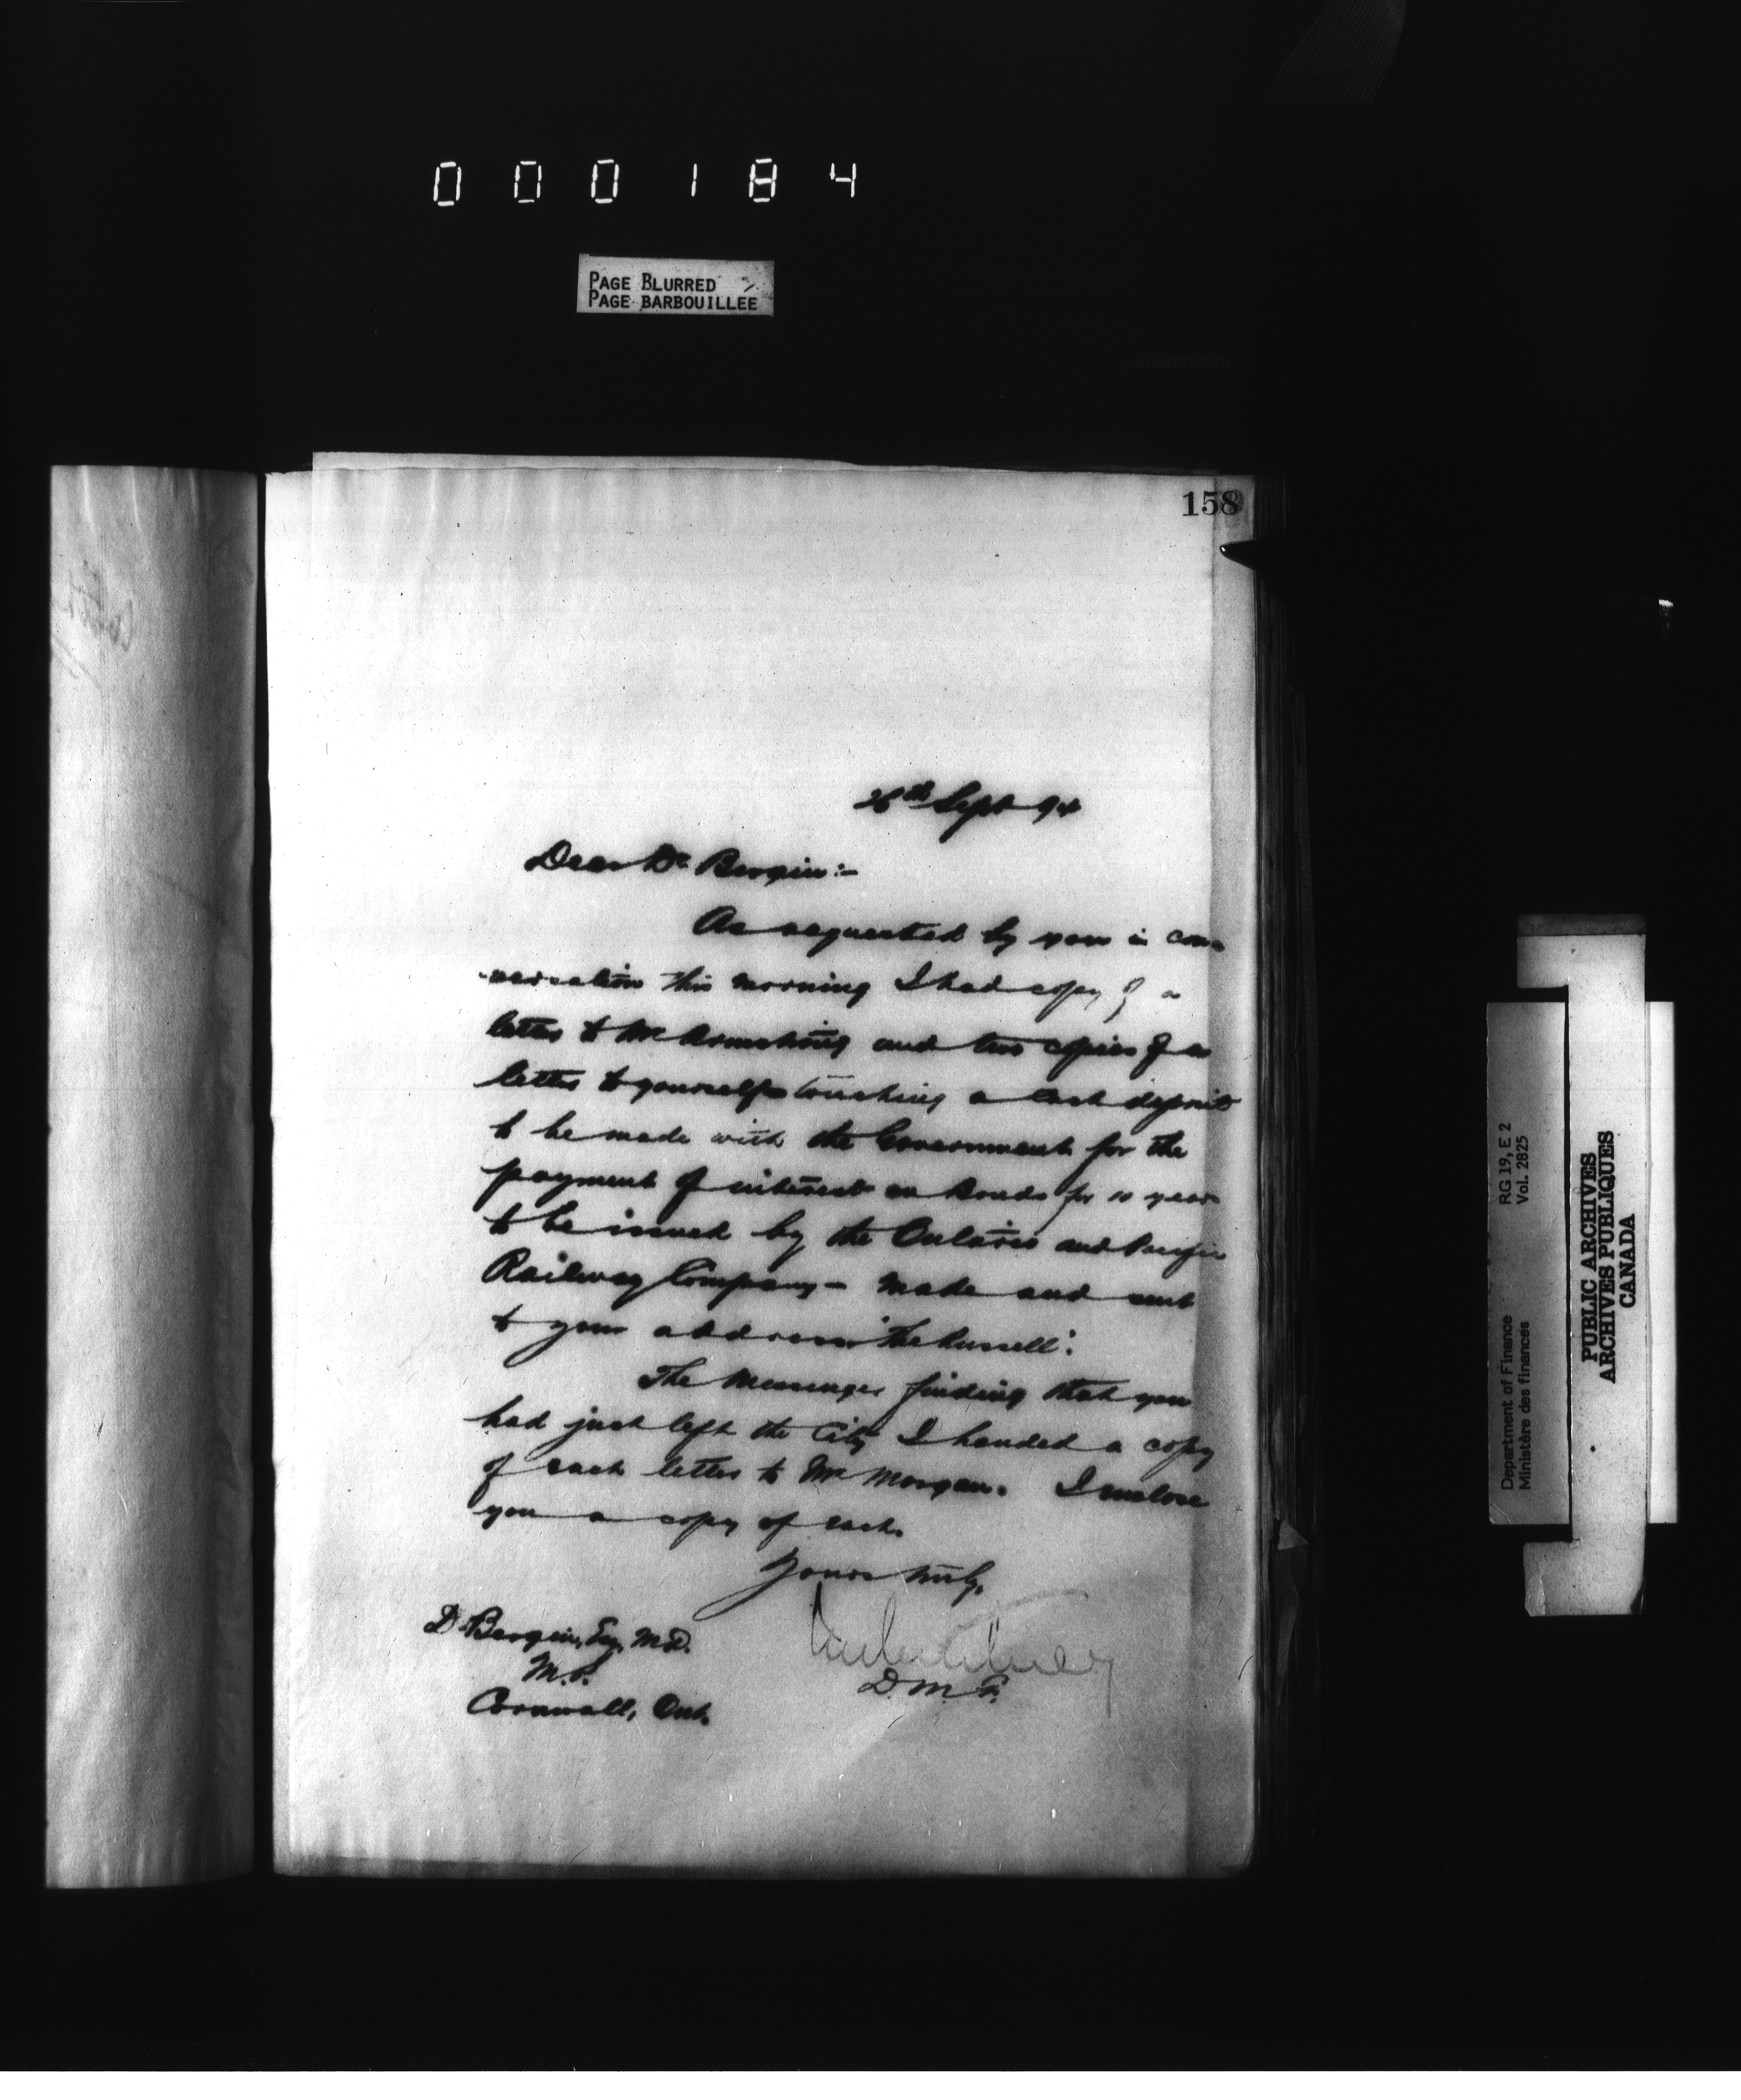 000184
PAGE BLURRED
PAGE BARBOUILLEE
158
26th Sept 94
Dear Dr Bergin:-
As requested by you in con-
-versation this morning I had copy of a
letter to Mr Armstrong and two copies of a
letter to yourself touching a cash deposit
to be made with the Government for the
payment of interest on Bonds for 10 years
to be issued by the Ontario and Pacific
Railway Company - made and sent
to your address "The Russell".
The Messenger finding that you
had just left the City I handed a copy
of each letter to Mr Morgan. I enclose
you a copy of each.
Yours truly,
D.M.F.
D. Bergin, Esq. M.D.
M.P.
Cornwall, Ont.
Department of Finance RG 19, E 2
Ministère des finances Vol. 2825
PUBLIC ARCHIVES
ARCHIVES PUBLIQUES
CANADA